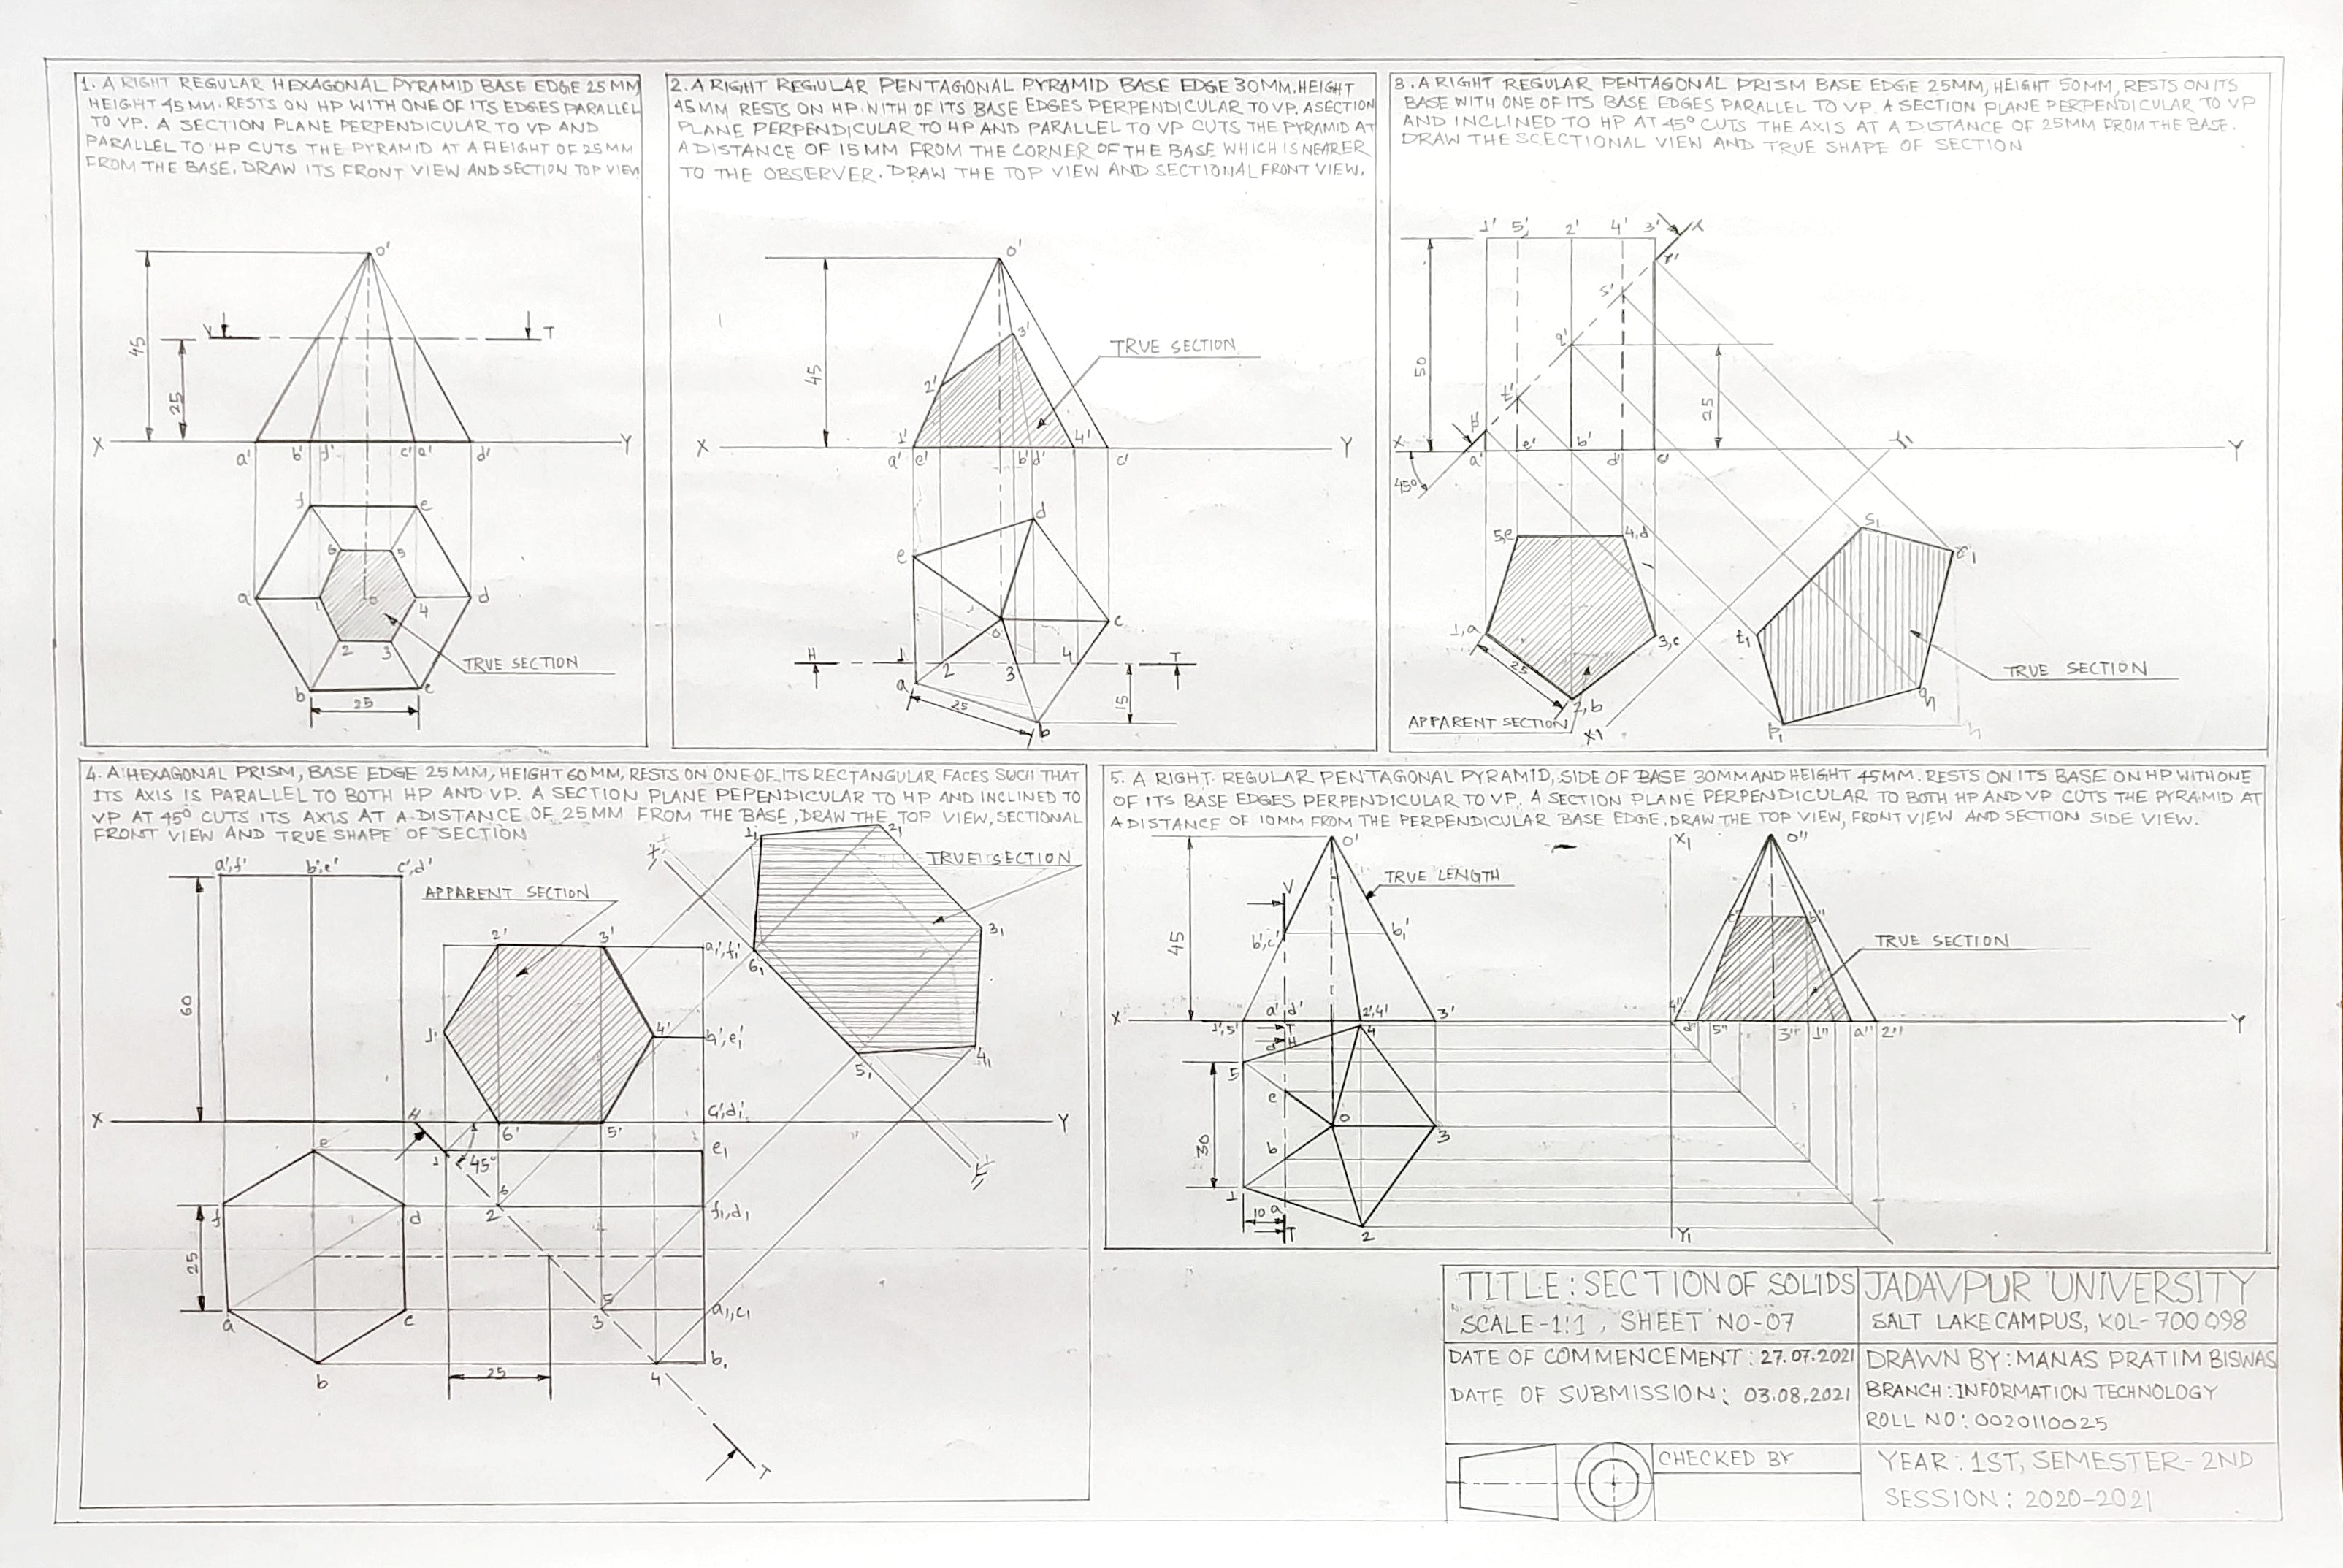 1. A RIGHT REGULAR HEXAGONAL PYRAMID BASE EDGE 25 MM
HEIGHT 45 MM. RESTS ON HP WITH ONE OF ITS EDGES PARALLEL
TO VP. A SECTION PLANE PERPENDICULAR TO VP AND
PARALLEL TO HP CUTS THE PYRAMID AT A HEIGHT OF 25MM
FROM THE BASE. DRAW ITS FRONT VIEW AND SECTION TOP VIEW
O'
V T
45
25
X a' b' f' c' e' d' Y
f e
6 5
a 1 o 4 d
2 3
TRUE SECTION
b c
25
2. A RIGHT REGULAR PENTAGONAL PYRAMID BASE EDGE 30MM. HEIGHT
45MM RESTS ON HP. WITH OF ITS BASE EDGES PERPENDICULAR TO VP. A SECTION
PLANE PERPENDICULAR TO HP AND PARALLEL TO VP CUTS THE PYRAMID AT
A DISTANCE OF 15MM FROM THE CORNER OF THE BASE WHICH IS NEARER
TO THE OBSERVER. DRAW THE TOP VIEW AND SECTIONAL FRONT VIEW.
O'
3'
TRUE SECTION
45
2'
1' 4'
X a' e' b' d' c' Y
d
e
o c
H 1 2 3 4 T
a
25
15
b
3. A RIGHT REGULAR PENTAGONAL PRISM BASE EDGE 25MM, HEIGHT 50MM, RESTS ON ITS
BASE WITH ONE OF ITS BASE EDGES PARALLEL TO VP. A SECTION PLANE PERPENDICULAR TO VP
AND INCLINED TO HP AT 45° CUTS THE AXIS AT A DISTANCE OF 25MM FROM THE BASE.
DRAW THE SCECTIONAL VIEW AND TRUE SHAPE OF SECTION
1' 5' 2' 4' 3'
r'
s'
q'
50
25
t'
X a' e' b' d' c' Y1 Y
45°
5,e 4,d
s1
r1
1,a 3,c
t1
25
TRUE SECTION
2,b
APPARENT SECTION
X1
p1
4. A HEXAGONAL PRISM, BASE EDGE 25MM, HEIGHT 60MM, RESTS ON ONE OF ITS RECTANGULAR FACES SUCH THAT
ITS AXIS IS PARALLEL TO BOTH HP AND VP. A SECTION PLANE PEPENDICULAR TO HP AND INCLINED TO
VP AT 45° CUTS ITS AXIS AT A DISTANCE OF 25MM FROM THE BASE, DRAW THE TOP VIEW, SECTIONAL
FRONT VIEW AND TRUE SHAPE OF SECTION
a',f' b',e' c',d'
APPARENT SECTION
11 21
TRUE SECTION
2' 3' a1',f1'
31
61
60
1' 4' b1',e1'
51 41
X H 6' 5' c1',d1' Y
e 1 45° e1
f d 6 2 f1,d1
25
a c 5 3 a1,c1
b 25 4 b1
T
5. A RIGHT REGULAR PENTAGONAL PYRAMID, SIDE OF BASE 30MM AND HEIGHT 45MM. RESTS ON ITS BASE ON HP WITH ONE
OF ITS BASE EDGES PERPENDICULAR TO VP. A SECTION PLANE PERPENDICULAR TO BOTH HP AND VP CUTS THE PYRAMID AT
A DISTANCE OF 10MM FROM THE PERPENDICULAR BASE EDGE. DRAW THE TOP VIEW, FRONT VIEW AND SECTION SIDE VIEW.
O' X1 O"
TRUE LENGTH
V
45
b',c' b1'
c" b"
TRUE SECTION
X 1',5' a' d' 2',4' 3' Y
4" d" 5" 3" 1" a" 2"
T
H
d 4
5
c
o
3
30
b
1
10 a
T
2
Y1
TITLE: SECTION OF SOLIDS
SCALE-1:1, SHEET NO-07
JADAVPUR UNIVERSITY
SALT LAKE CAMPUS, KOL-700098
DATE OF COMMENCEMENT: 27.07.2021
DATE OF SUBMISSION: 03.08.2021
DRAWN BY: MANAS PRATIM BISWAS
BRANCH: INFORMATION TECHNOLOGY
ROLL NO: 0020110025
CHECKED BY
YEAR: 1ST, SEMESTER-2ND
SESSION: 2020-2021